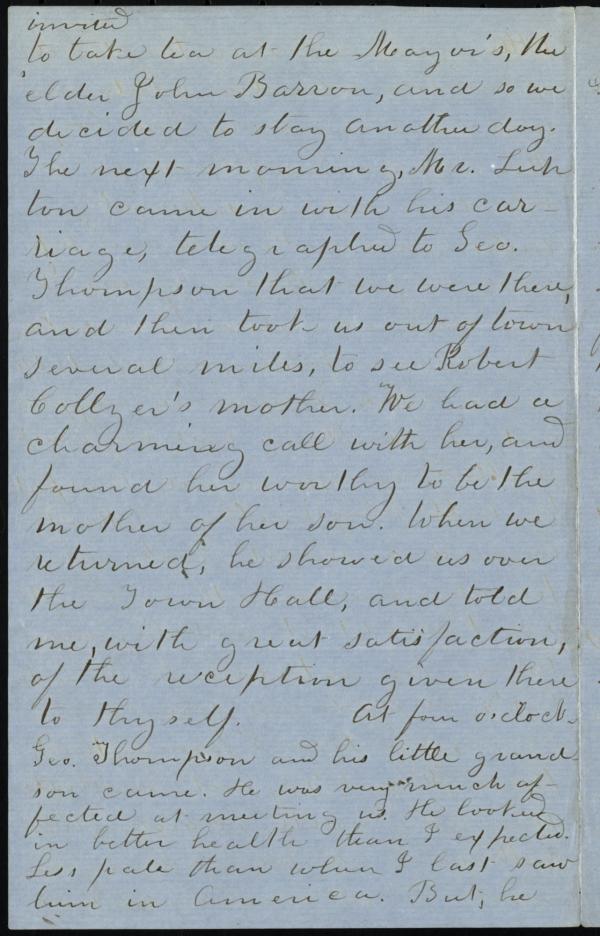 invited
to take tea at the Mayor's, the
elder John Barron, and so we
decided to stay another day.
The next morning, Mr. Lup
ton came in with his car-
riage, telegraphed to Geo.
Thompson that we were there,
and then took us out of town
several miles, to see Robert
Collyer's mother. We had a
charming call with her, and
found her worthy to be the
mother of her son. When we
returned, he showed us over
the Town Hall, and told
me, with great satisfaction,
of the reception given there
to thyself. At four o'clock
Geo. Thompson and his little grand-
son came. He was very much af-
fected at meeting us. He looked
in better health than I expected.
Less pale than when I last saw
him in America. But, he